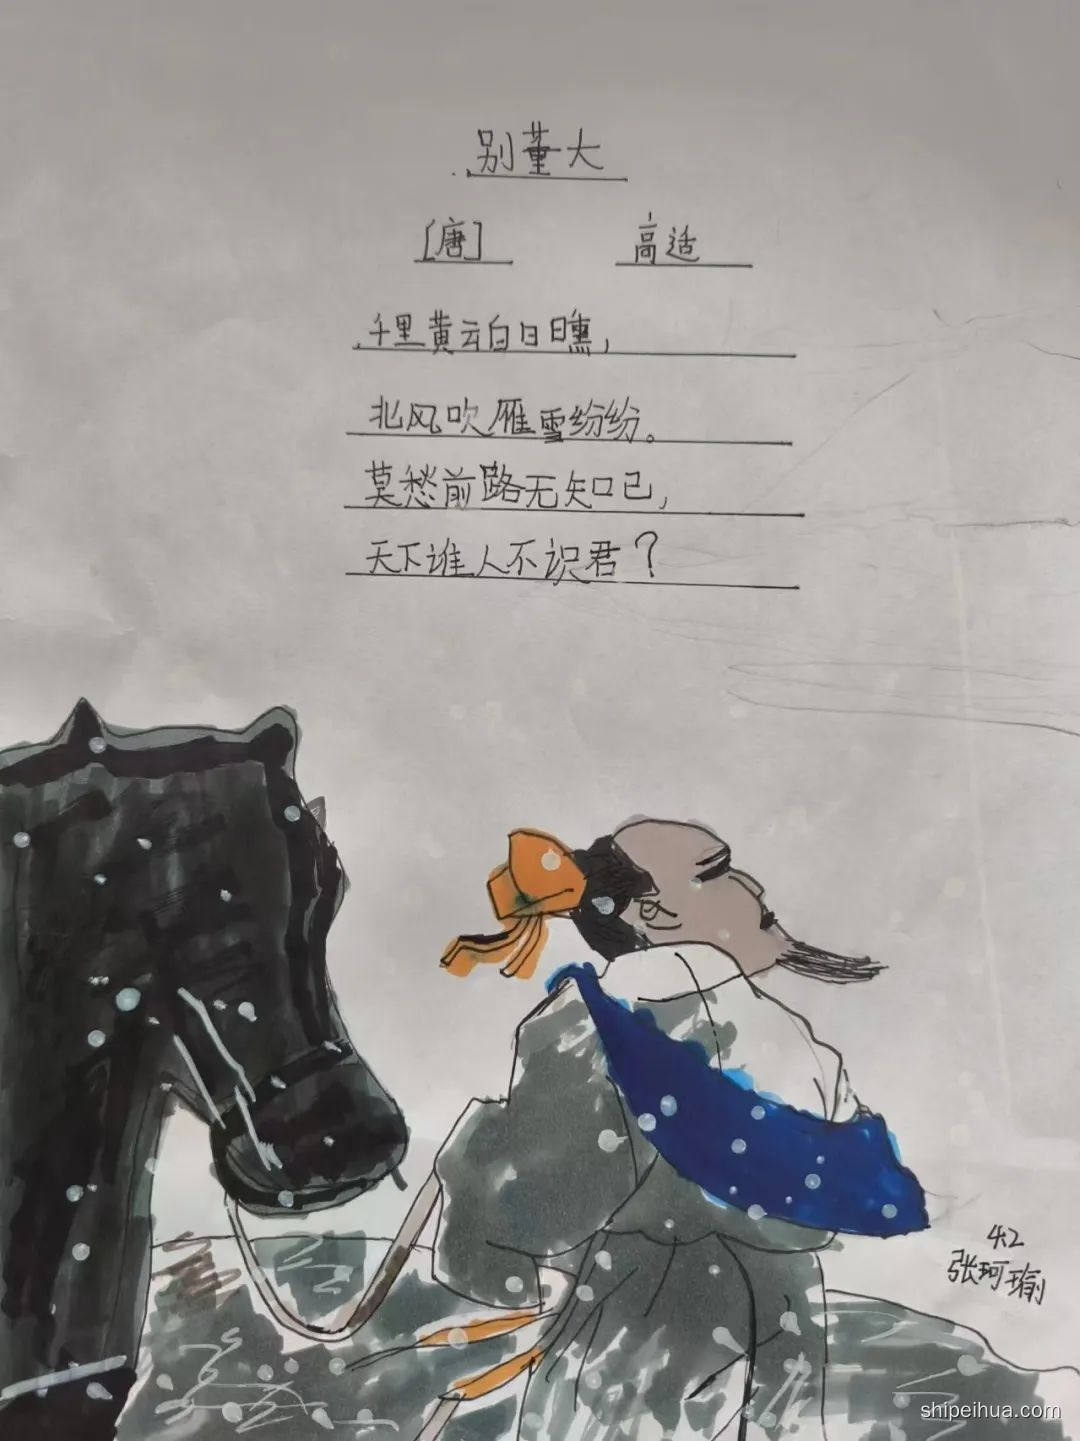 别董大
[唐] 高适
千里黄云白日曛，
北风吹雁雪纷纷。
莫愁前路无知己，
天下谁人不识君？
4.2
张珂瑜
shipeihua.com